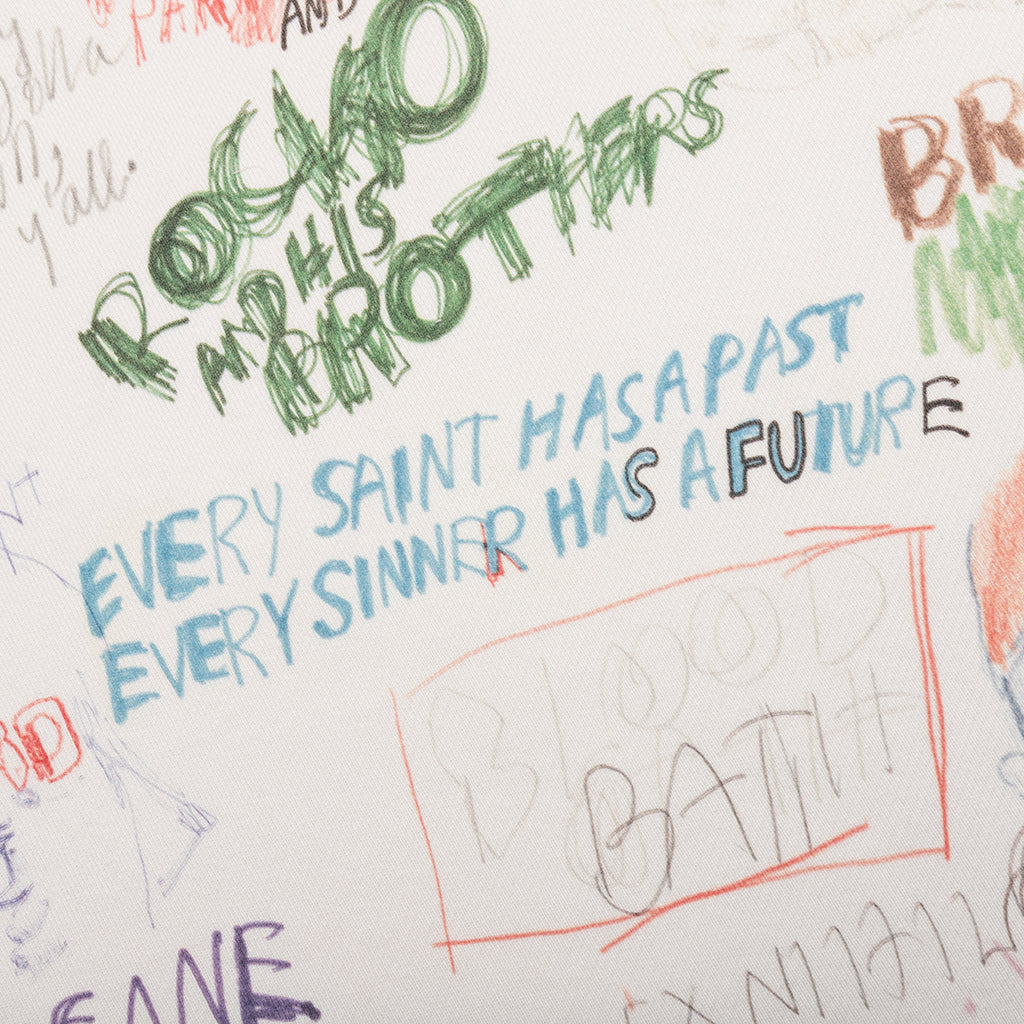 AND
y'all.
ROCKO
AND HIS
BROTHERS
BR
EVERY SAINT HAS A PAST
EVERY SINNER HAS A FUTURE
BLOOD
BATH
BD
EANE